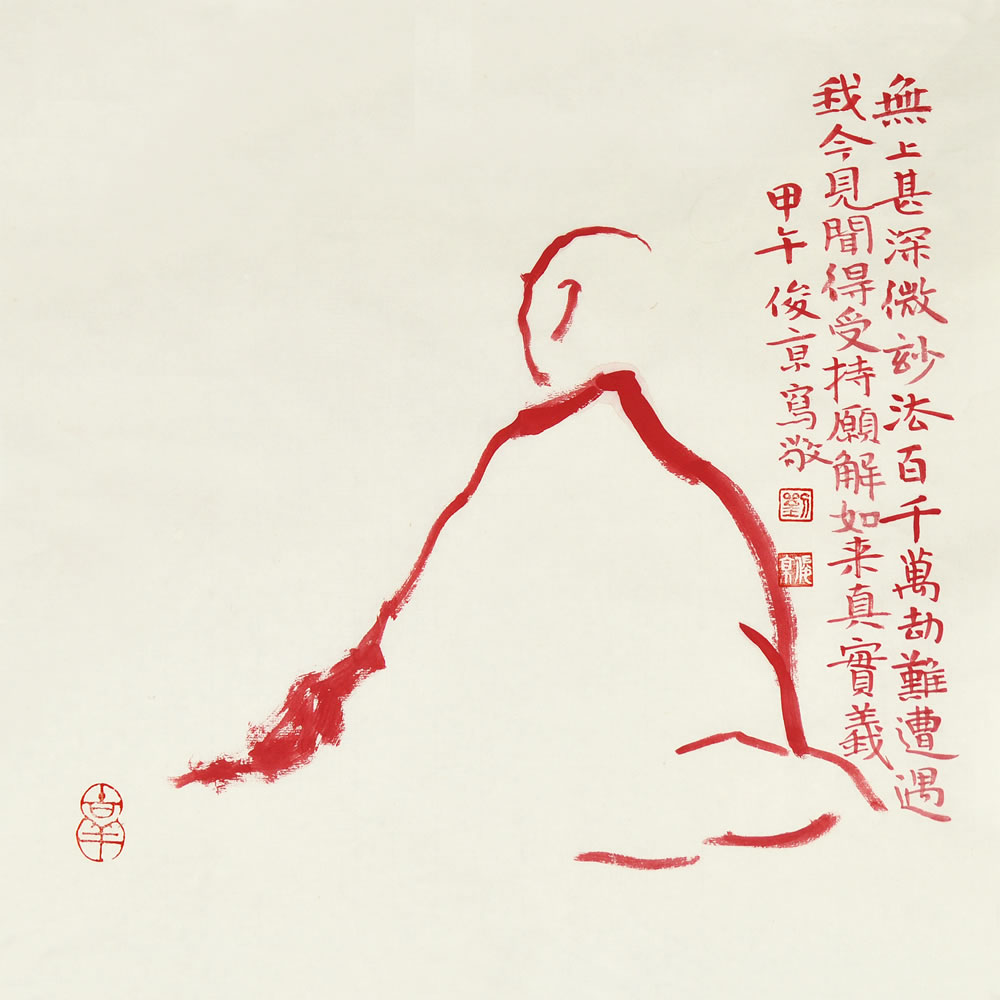 無上甚深微妙法百千萬劫難遭遇
我今見聞得受持願解如来真實義
甲午俊京寫敬
劉
俊京
吉羊